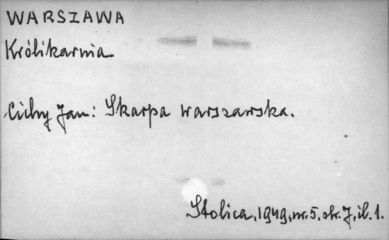 WARSZAWA
Królikarnia
Cichy Jan: Skarpa warszawska.
Stolica, 1949, nr. 5, str. 7, il. 1.